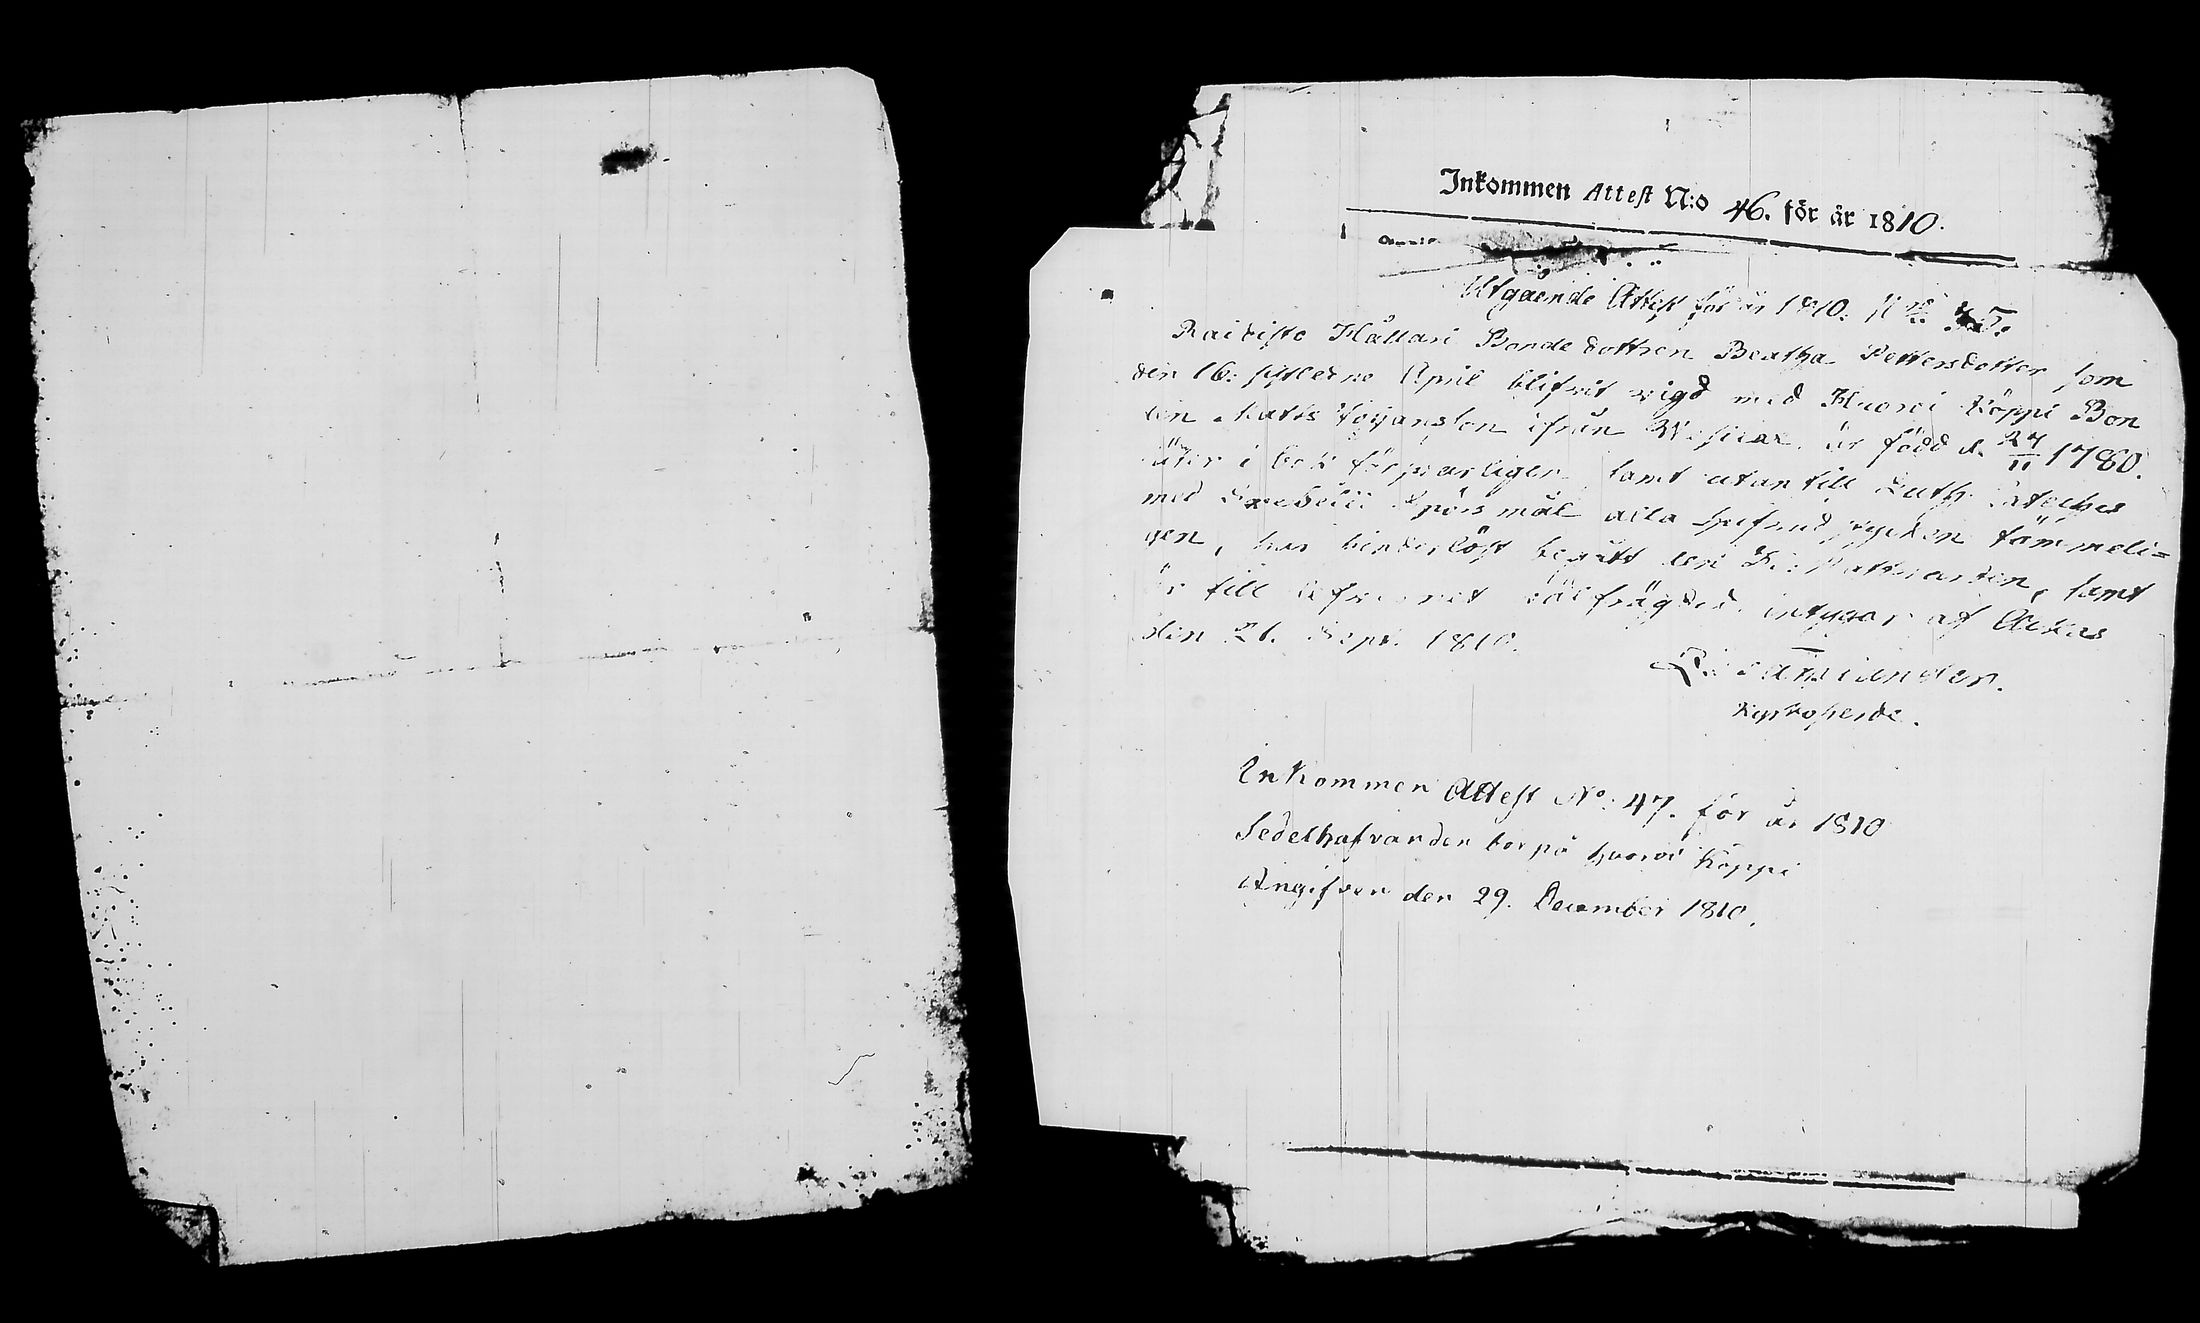 Inkommen Attest N:o 46. för år 1810.
Utgående Attest för år 1810. N:o 45.
Raikisto Hållari Bondedottren Beatha Pettersdotter som
den 16: sistledne April blifvit vigd med Huovoi Köppi Bon
den Matts Johansson ifrån, är född d. 27/11 1780.
läser i bok försvarligen, samt utan till Luth. Cateches
med Svebelii Spörsmål alla hufvudstycken tämmeli=
gen, har hinderlöst begått den H. Nattvarden, samt
är till lefvernet välfrägdad. intygar af Ackas
den 21. Sept. 1810.
Kyrkoherde.
Inkommen Attest No: 47. för år 1810
Sedelhafvanden bor på Huovoi Köppi
Angifven den 29. December 1810.